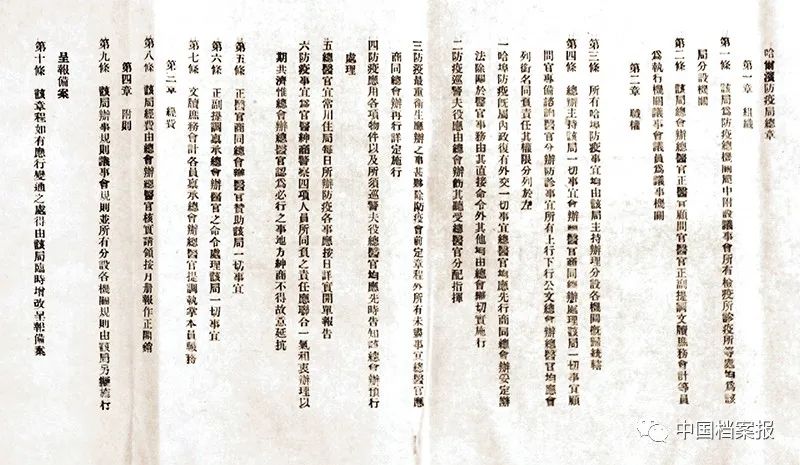 哈爾濱防疫局簡章
第一章 組織
第一條 該局為防疫總機關應中附設議事會所有檢疫所診疫所等處均為該
局分設機關
第二條 該局總會辦總醫官正醫官顧問官醫官正副提調文牘庶務會計等員
為執行機關議事會議員為議事機關
第二章 職權
第三條 所有哈埠防疫事宜均由該局主持辦理分設各機關概歸統轄
第四條 總辦主持該局一切事宜會辦總醫官商同總辦處理該局一切事宜顧
問官專備諮詢醫官分辦防診事宜所有上行下行公文總會辦總醫官均應會
列銜名同負責任其權限分列於左
一哈埠防疫既屬內政復有外交一切事宜總醫官均應先行商同總會辦妥定辦
法除關於醫官事務由其直接命令外其他均由總會辦切實施行
二防疫巡警夫役應由總會辦飭其聽受總醫官分配指揮
三防疫最重衛生應辦之事甚夥除防疫會前定章程外所有未盡事宜總醫官應
商同會辦再行詳定施行
四防疫應用各項物件以及所須巡警夫役總醫官均應先時告知該總會辦預行
處理
五總醫官宜常川住局每日所辦防疫各事應按日詳實開單報告
六防疫事宜為官醫紳商警察四項人員所同負之責任應聯合一氣和衷辦理以
期共濟惟總會辦總醫官認為必行之事地方紳商不得故意延抗
第五條 正醫官商同總會辦總醫官贊助該局一切事宜
第六條 正副提調稟承總會辦總醫官之命令處理該局一切事宜
第七條 文牘庶務會計各員稟承總會辦總醫官提調執掌本員職務
第三章 經費
第八條 該局經費由總會辦總醫官核實請領按月册報作正開銷
第四章 附則
第九條 該局辦事規則議事會規則並所有分設各機關規則由該局另擬施行
呈報備案
第十條 該章程如有應行變通之處得由該局臨時增改呈報備案
中国档案报